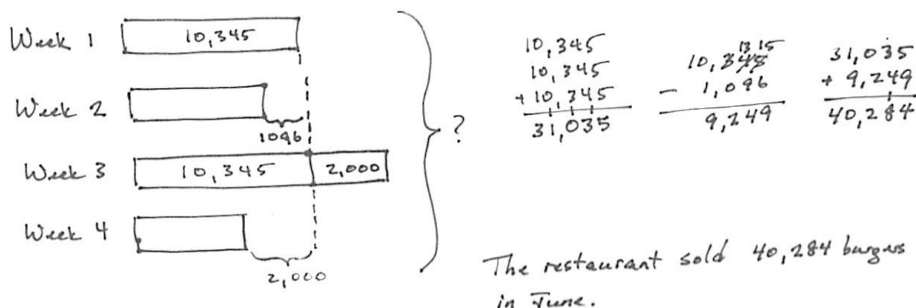 Week 1 10,345
Week 2
1096
Week 3 10,345 2,000
Week 4
2,000
?
10,345
10,345
+10,345
31,035
10,345
13 15
- 1,096
9,249
31,035
+ 9,249
40,284
The restaurant sold 40,284 burgers
in June.